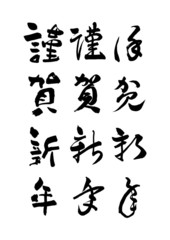 謹賀新年
謹賀新年
謹賀新年